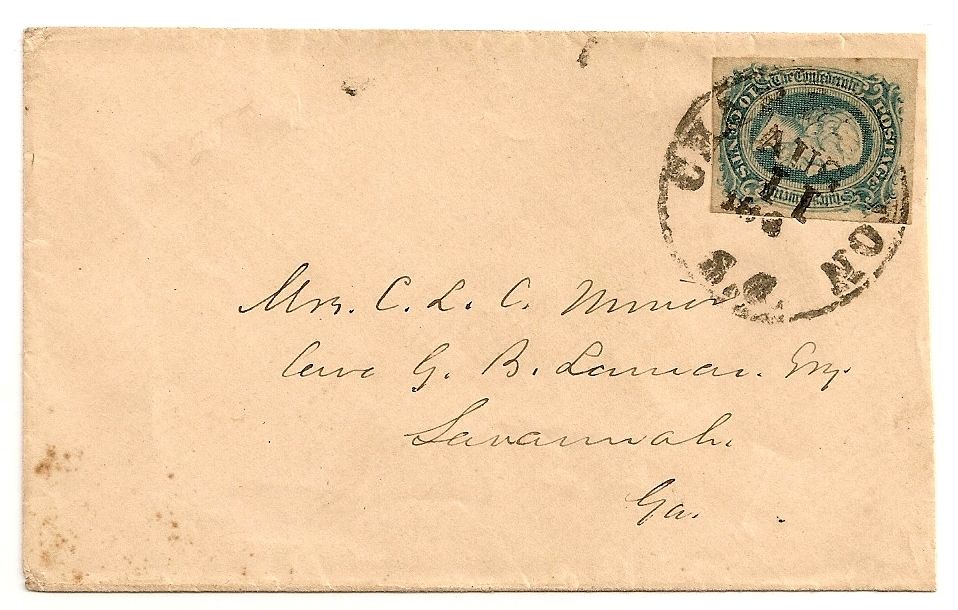 The Confederate
STATES OF
POSTAGE
AUG
11
186
ON
S.C.
Mrs. C. L. C. Minor
Care G. B. Lamar. Esq.
Savannah.
Ga.